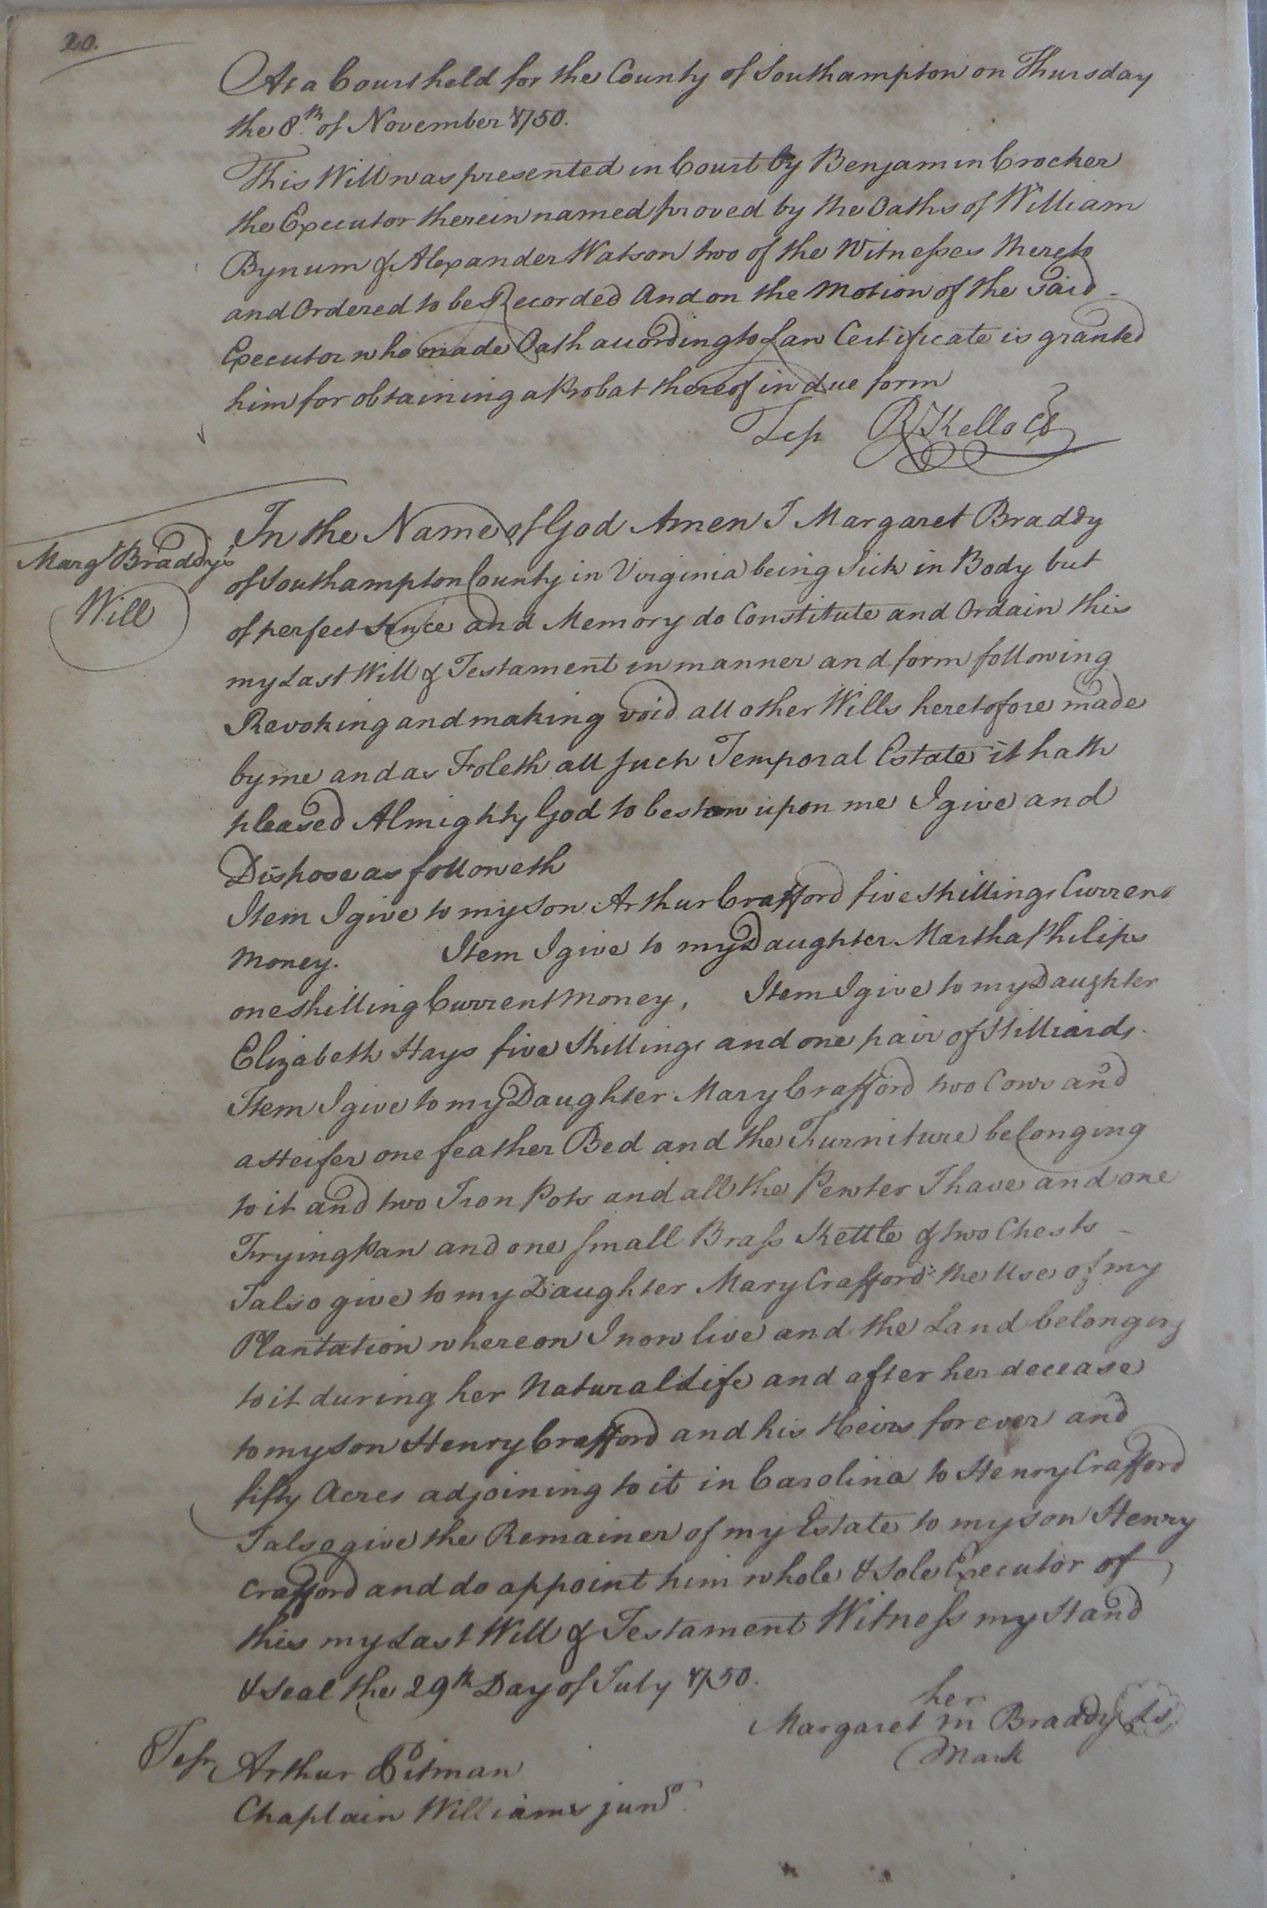 20.
At a Court held for the County of Southampton on Thursday
the 8.th of November 1750.
This Will was presented in Court by Benjamin Crocker
the Executor therein named proved by the Oaths of William
Bynum & Alexander Watson two of the Witnesses thereto
and Ordered to be Recorded And on the Motion of the said
Executor who made Oath according to Law Certificate is granted
him for obtaining a Probat thereof in due form
Test R Kello
Marg.t Braddy's
Will
In the Name of God Amen I Margaret Braddy
of Southampton County in Virginia being Sick in Body but
of perfect Sence and Memory do Constitute and Ordain this
my Last Will & Testament in manner and form following
Revoking and making void all other Wills heretofore made
by me and as Foleth all such Temporal Estate it hath
pleased Almighty God to bestow upon me I give and
Dispose as followeth
Item I give to my Son Arthur Crafford five Shillings Current
Money. Item I give to my Daughter Martha Philips
one shilling Current Money, Item I give to my Daughter
Elizabeth Hays five Shillings and one pair of Stilliards.
Item I give to my Daughter Mary Crafford two Cows and
a Heifer one feather Bed and the Furniture belonging
to it and two Iron Pots and all the Pewter I have and one
Frying Pan and one small Brass Kettle & two Chests
I also give to my Daughter Mary Crafford the Use of my
Plantation whereon I now live and the Land belonging
to it during her Natural Life and after her decease
to my Son Henry Crafford and his Heirs for ever and
fifty Acres adjoining to it in Carolina to Henry Crafford
I also give the Remainer of my Estate to my son Henry
Crafford and do appoint him whole & Sole Executor of
this my Last Will & Testament Witness my Hand
& Seal the 29th Day of July 1750.
her
Margaret m Braddy Ls
Mark
Test Arthur Pitman
Chaplain Williams jun.o